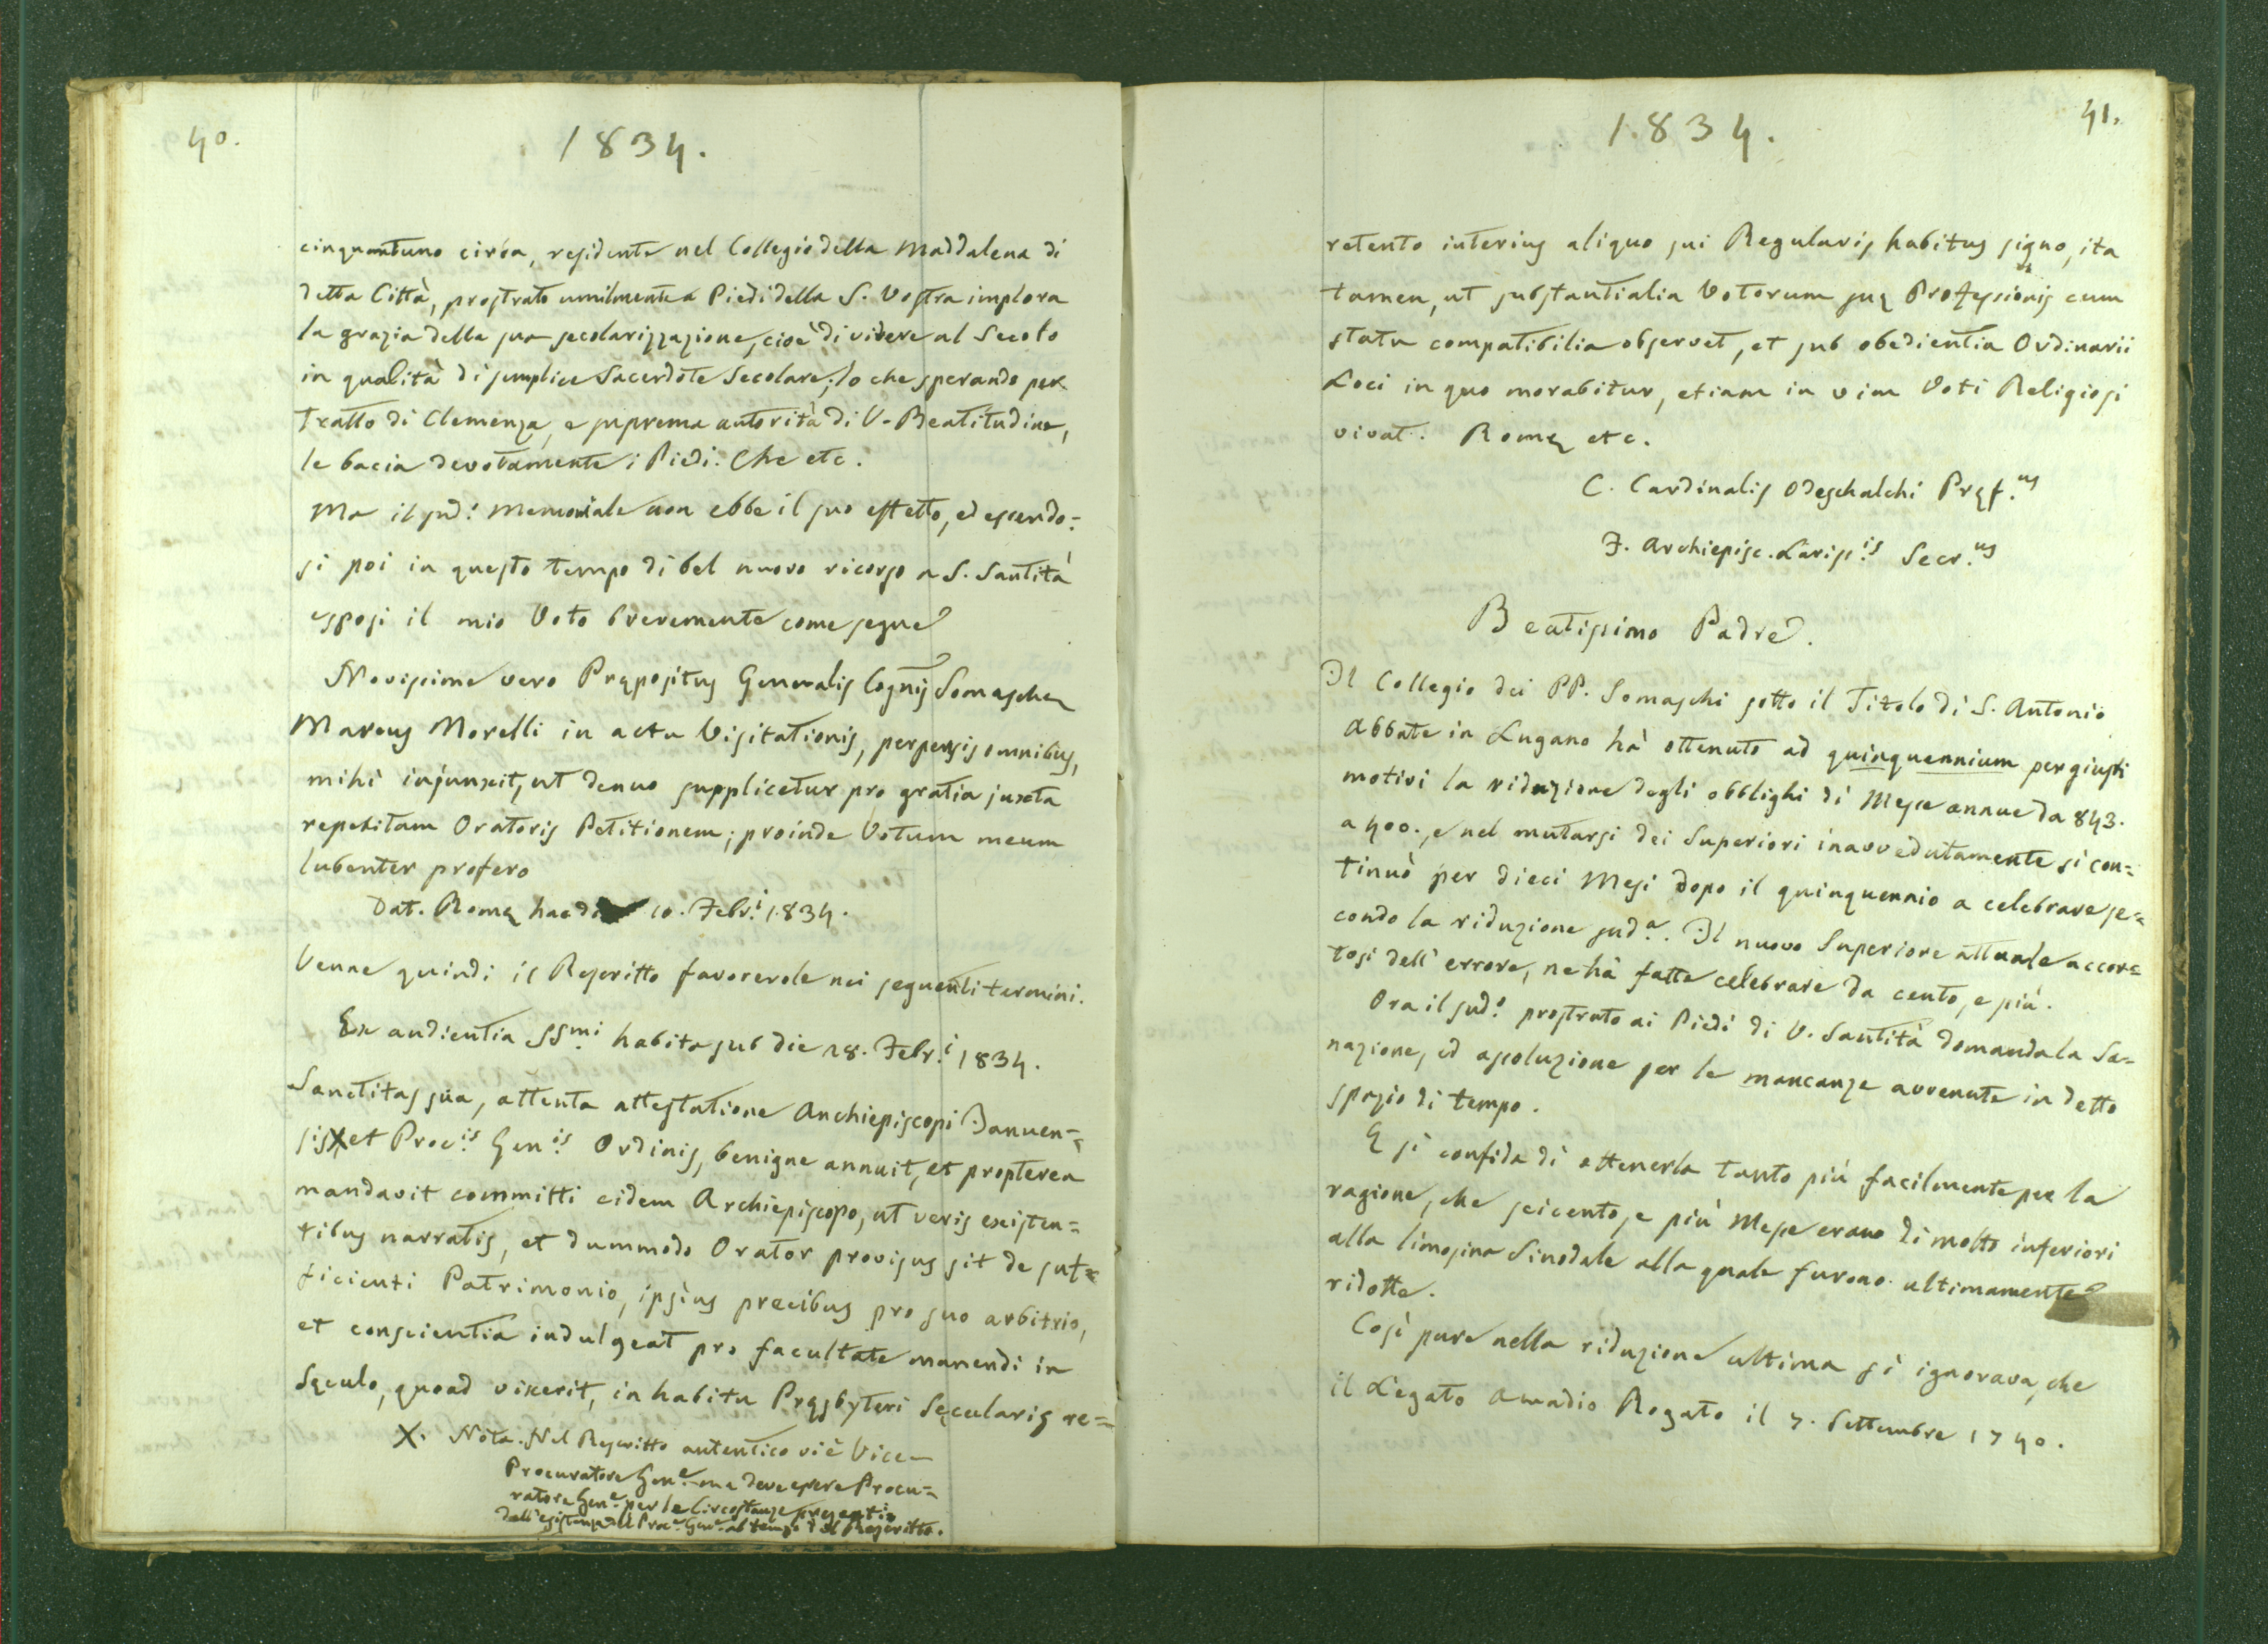 40.
1834.
cinquantuno circa, residente nel Collegio della Maddalena di
detta Città, prostrato umilmente a Piedi della S. Vostra implora
la grazia della sua secolarizzazione, cioè di vivere al Secolo
in qualità di semplice Sacerdote Secolare; lo che sperando per
tratto di Clemenza, e suprema autorità di V. Beatitudine,
le bacia devotamente i Piedi. Che etc.
Ma il sud.º memoriale non ebbe il suo effetto, ed essendo=
si poi in questo tempo di bel nuovo ricorso a S. Santità
esposi il mio Voto brevemente come segue
Novissime vero Præpositus Generalis Cogñis Somaschæ
Marcus Morelli in actu Visitationis, perpensis omnibus,
mihi injunxit, ut denuo supplicetur pro gratia juxta
repetitam Oratoris Petitionem; proinde Votum meum
lubenter profero
Dat. Romæ hac die 10. Febr.i 1834.
Venne quindi il Rescritto favorevole nei seguenti termini.
Ex audientia SSmi habita sub die 28. Febr.i 1834.
Sanctitas sua, attenta attestatione Archiepiscopi Januen=
sis X et Proc.is Gen.is Ordinis, benigne annuit, et propterea
mandavit committi eidem Archiepiscopo, ut veris existen=
tibus narratis, et dummodo Orator provisus sit de suf=
ficienti Patrimonio, ipsius precibus pro suo arbitrio,
et conscientia indulgeat pro facultate manendi in
Sæculo, quoad vixerit, in habitu Præsbyteri Sæcularis re=
X. Nota. Nel Rescritto autentico vi è Vice
Procuratore Gen.e ma deve essere Procu=
ratore Gen.e per le Circostanze presenti
dell'esistenza del Proc.e Gen.e al tempo del Rescritto.
41.
1834.
retento interius aliquo sui Regularis habitus signo, ita
tamen, ut substantialia Votorum suæ Professionis cum
statu compatibilia observet, et sub obedientia Ordinarii
Loci in quo morabitur, etiam in vim Voti Religiosi
vivat. Romæ etc.
C. Cardinalis Odeschalchi Præf.us
J. Archiepisc. Lariss.is Secr.us
Beatissimo Padre.
Il Collegio dei PP. Somaschi sotto il Titolo di S. Antonio
Abbate in Lugano hà ottenuto ad quinquennium per giusti
motivi la riduzione degli obblighi di Messe annue da 843.
a 400., e nel mutarsi dei Superiori inavvedutamente si con=
tinuò per dieci Mesi dopo il quinquennio a celebrare se=
condo la riduzione sud.a. Il nuovo Superiore attuale accor=
tosi dell'errore, ne hà fatte celebrare da cento, e più.
Ora il sud.º prostrato ai Piedi di V. Santità domanda la Sa=
nazione, ed assoluzione per le mancanze avvenute in detto
spazio di tempo.
E si confida di ottenerla tanto più facilmente per la
ragione, che seicento, e più Messe erano di molto inferiori
alla limosina Sinodale alla quale furono ultimamente
ridotte.
Così pure nella riduzione ultima si ignorava, che
il Legato Amadio Rogato il 7. Settembre 1740.